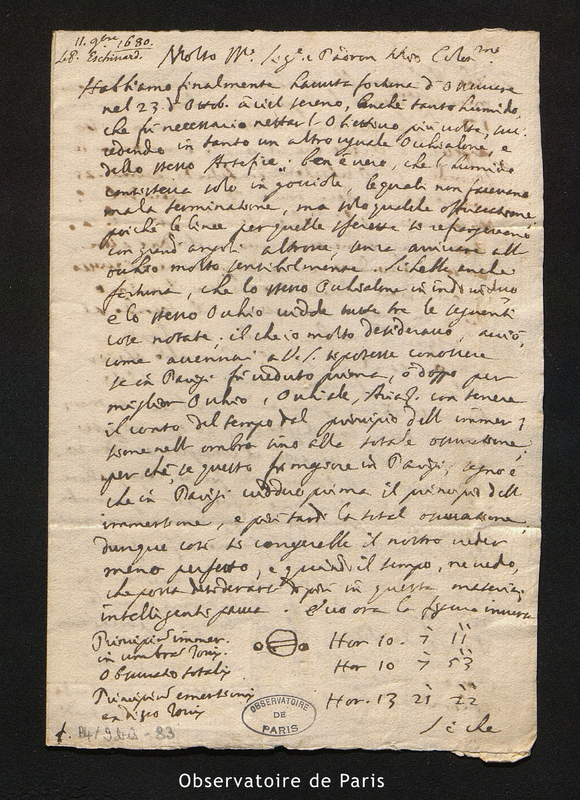 11. 9bre 1680.
Le P. Eschinard.
Molto Ill.re Sig.r e Padron mio Colen.mo
Habbiamo finalmente havuta fortuna d'osservare
nel 23. d'Ottob. à ciel sereno, benche tanto humido,
che fù necessario nettar l'Obiettivo più volte, suc-
cedendo in tanto un altro uguale Occhialone, e
dello stesso Artefice: ben è vero, che l'humido
consisteva solo in gocciole, le quali non facevano
mala terminatione, ma solo qualche offuscatione
poiche le linee per quelle sferette si
con grand angoli altrove, senza arrivare all
occhio molto sensibilmente. Si hebbe anche
fortuna, che lo stesso Occhialone in individuo,
e lo stesso Occhio vidde tutte tre le seguenti
cose notate, il che io molto desideravo, acciò,
come avvennai a V.S. si potesse conoscere
se in Parigi fù veduto prima, ò doppo per
miglior Occhio, Occhiale, Aria &c. con tenere
il conto del tempo dal principio dell immer-
sione nell ombra sino alla totale occultatione,
per che, se questo fù magiore in Parigi, segno è
che in Parigi vedduto prima il principio dell
immersione, e più tardi la total occultatione,
dunque così si correggerebbe il nostro veder
meno perfetto, e quindi il tempo, ne vedo,
che possa desiderarsi di più in questa materia;
intelligenti pauca. Ecco ora la figura inversa
Principium immer.
in umbra Jovis
Hor 10. 7 11
Occultatio totalis
Hor 10 7 53
Principium emersionis
ex disco Jovis
Hor. 13 21 22
Si che
OBSERVATOIRE
DE
PARIS
Observatoire de Paris